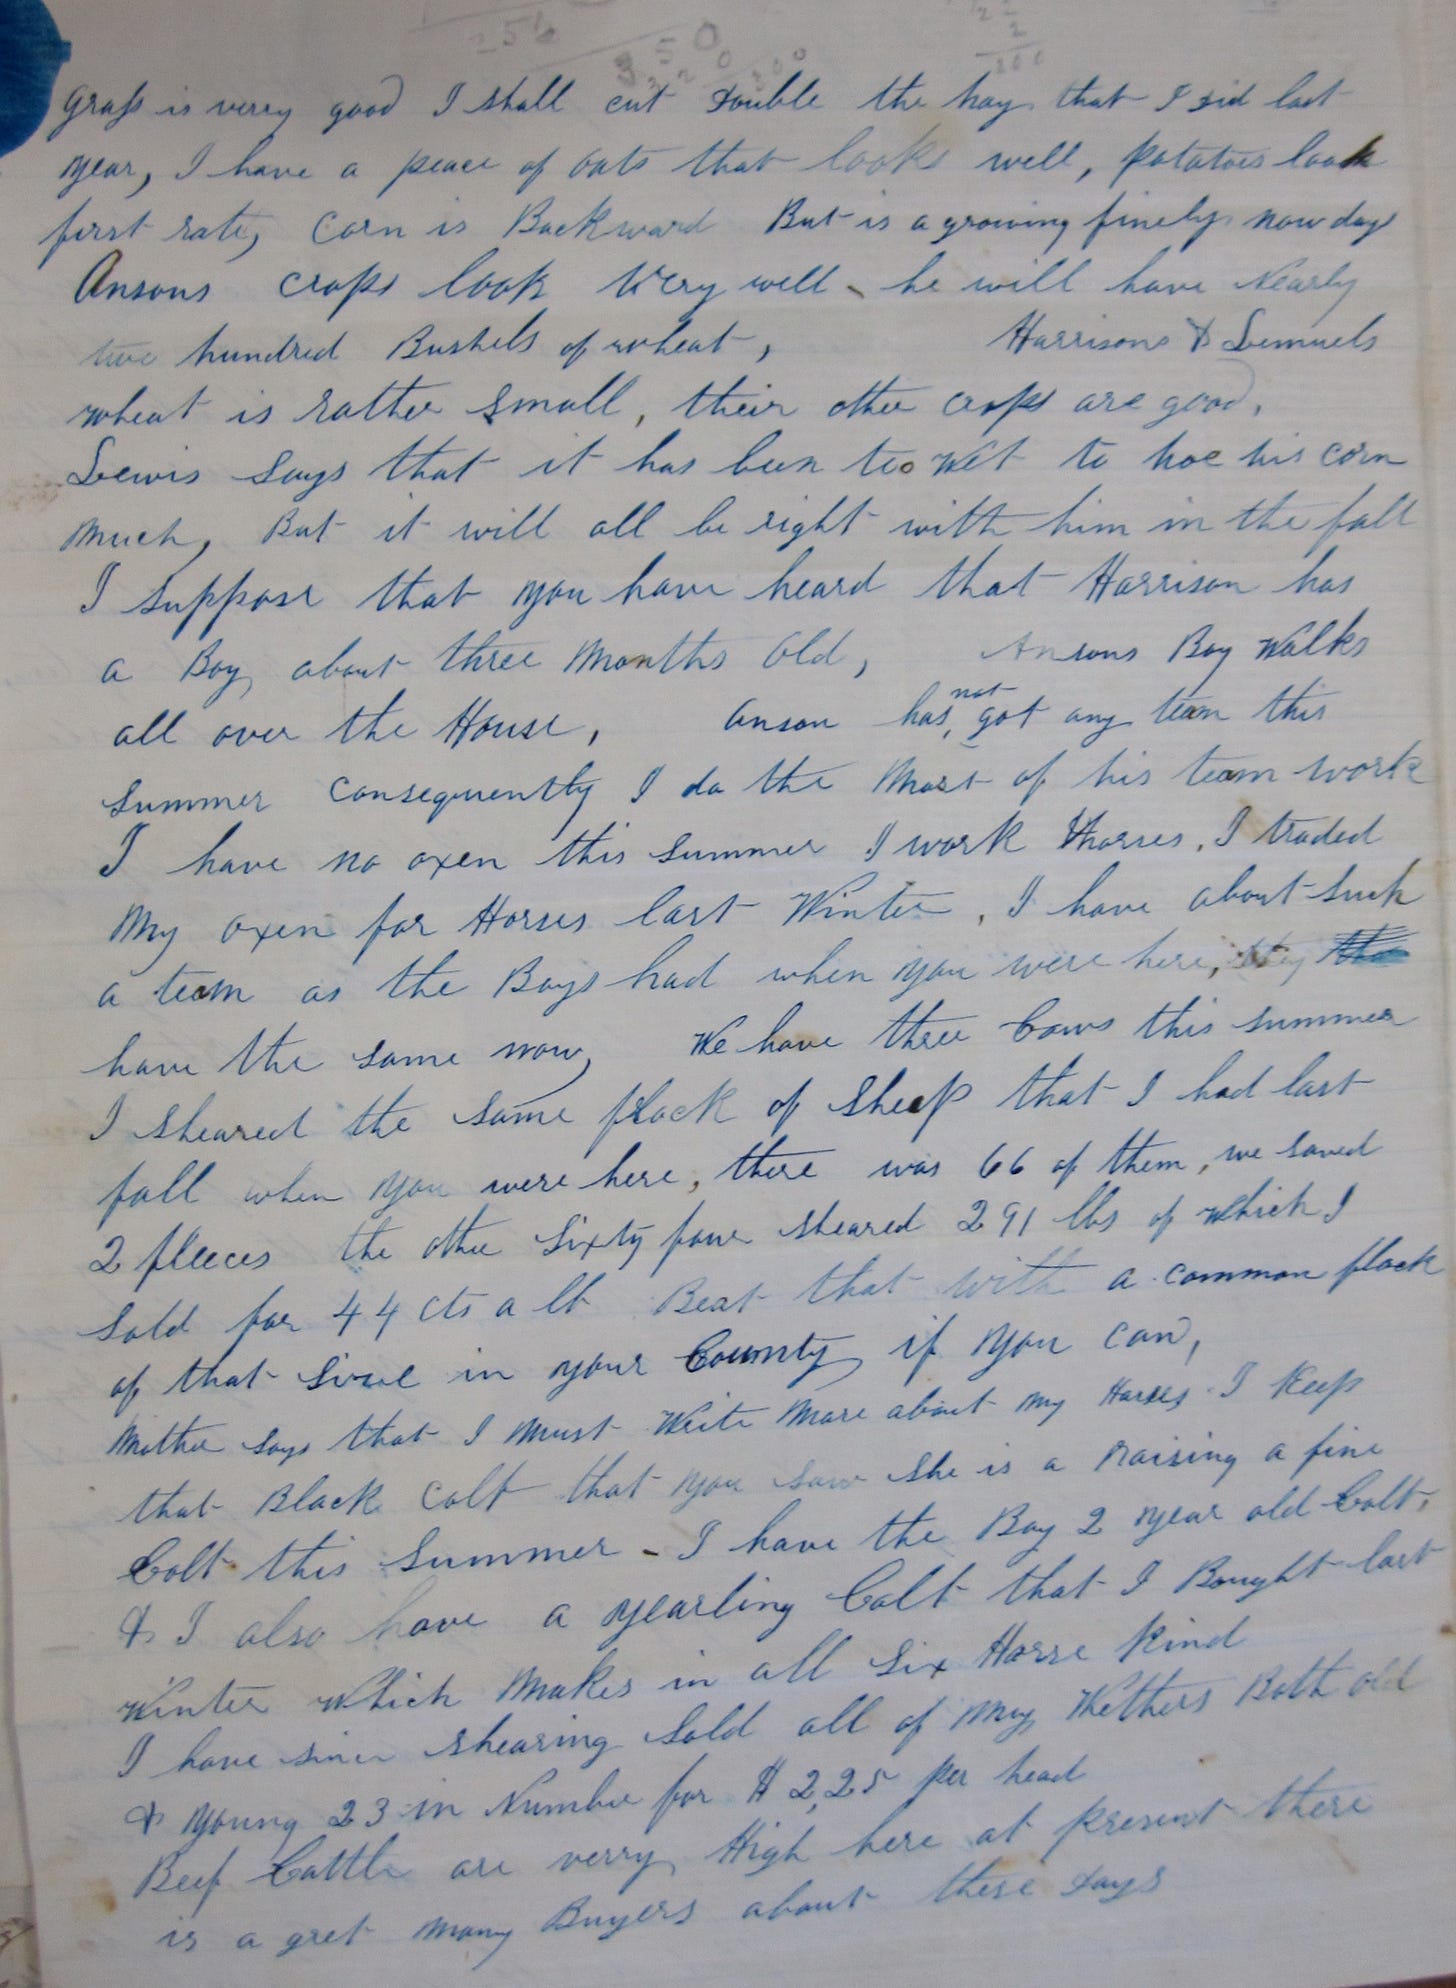 256
350
220
200
2
2
200
Grass is verry good I shall cut double the hay that I did last
year, I have a peace of oats that looks well, potatoes look
first rate, Corn is Backward But is a growing finely now days
Ansons crops look Very well - he will have Nearly
two hundred Bushels of wheat, Harrisons & Lemuels
wheat is rather small, their other crops are good,
Lewis Says that it has been too wet to hoe his corn
much, But it will all be right with him in the fall
I suppose that you have heard that Harrison has
a Boy about three Months old, Ansons Boy Walks
all over the House, Anson has not got any team this
summer consequently I do the Most of his team work
I have no oxen this summer I work Horses, I traded
My oxen for Horses last Winter, I have about such
a team as the Boys had when you were here, they
have the same now, We have three Cows this summer
I sheared the same flock of sheep that I had last
fall when you were here, there was 66 of them, we saved
2 fleeces the other Sixty four sheared 291 lbs of which I
Sold for 44 cts a lb Beat that with a common flock
of that Sise in your County if you can,
Mother says that I must Write More about my Horses I Keep
that Black Colt that you saw she is a raising a fine
Colt this Summer - I have the Bay 2 year old Colt,
& I also have a yearling Colt that I Bought last
Winter which Makes in all Six Horse Kind
I have since shearing Sold all of My Wethers Both old
& young 23 in Number for $ 2,25 per head
Beef Cattle are verry High here at present there
is a gret many Buyers about these days